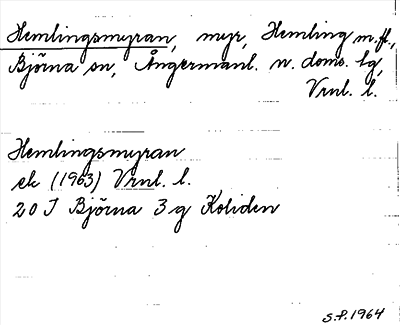 Hemlingsmyran, myr, Hemling m.fl.,
Björna sn, Ångermanl. n. doms. lg,
Vrnl. l.
Hemlingsmyran
ek (1963) Vrnl. l.
20 J Björna 3 g Koliden
S.P. 1964